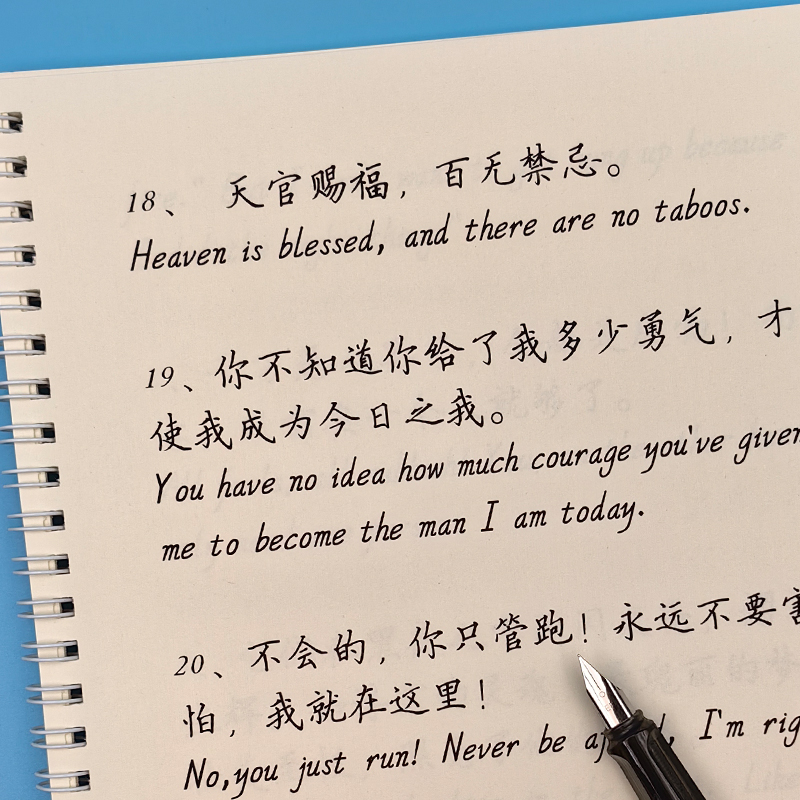 18、 天官赐福，百无禁忌。
Heaven is blessed, and there are no taboos.
19、你不知道你给了我多少勇气，才
使我成为今日之我。
You have no idea how much courage you've given
me to become the man I am today.
20、不会的，你只管跑！永远不要害
怕，我就在这里！
No,you just run! Never be I'm